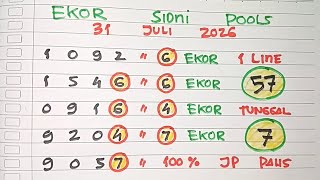 EKOR SIDNI POOLS
31 JULI 2026
1 0 9 2 " 6 EKOR 1 LINE
1 5 4 6 " 6 EKOR 57
0 9 1 6 " 6 EKOR TUNGGAL
9 2 0 4 " 7 EKOR 7
9 0 5 7 " 100 % JP PAUS